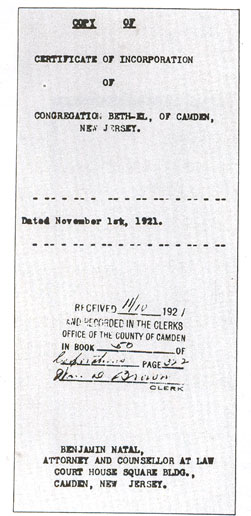 COPY OF
CERTIFICATE OF INCORPORATION
OF
CONGREGATION BETH-EL, OF CAMDEN,
NEW JERSEY.
Dated November 1st, 1921.
RECEIVED 11/10 1921
AND RECORDED IN THE CLERKS
OFFICE OF THE COUNTY OF CAMDEN
IN BOOK 50 OF
PAGE
CLERK
BENJAMIN NATAL,
ATTORNEY AND COUNSELLOR AT LAW
COURT HOUSE SQUARE BLDG.,
CAMDEN, NEW JERSEY.